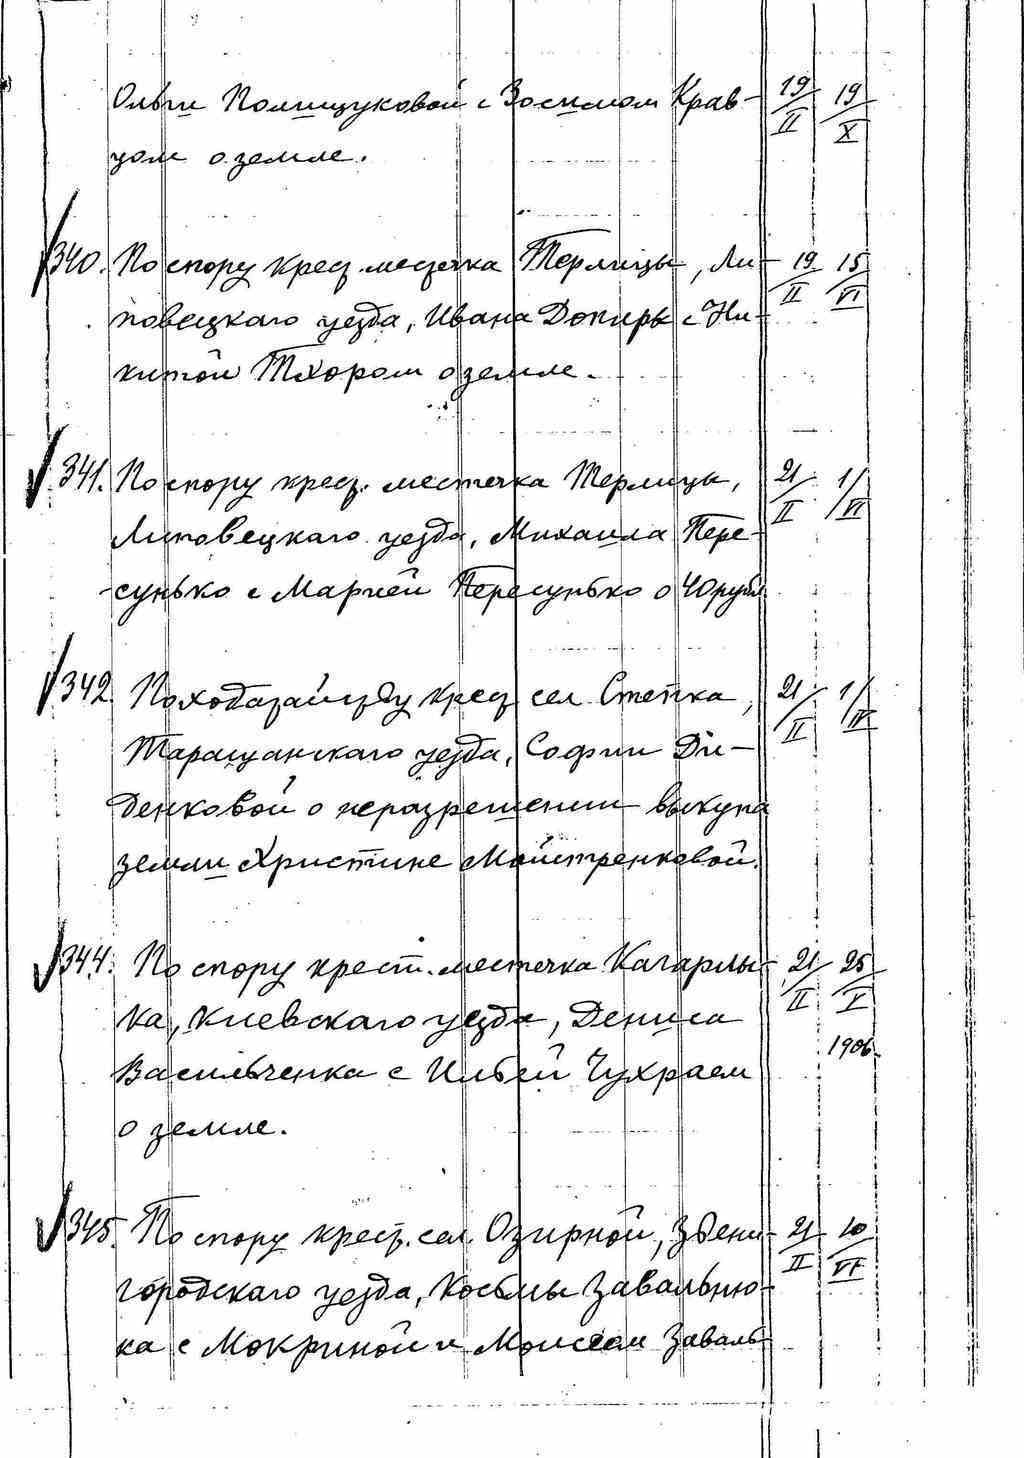 Ольги Полищуковой с Зосимом Крав- 19/II 19/X
цом о земле.
340. По спору крест. местечка Терлицы, Ли- 19/II 15/VI
повецкаго уезда, Ивана Допиры с Ни-
китой Тхором о земле.
341. По спору крест. местечка Терлицы, 21/II 1/VI
Липовецкаго уезда, Михаила Пере-
сунько с Марией Пересунько о 40 рубл
342. По ходатайству крест сел. Степка, 21/II 1/IV
Таращанскаго уезда, Софии Ди-
денковой о неразрешении выкупа
земли Христине Майстренковой.
344. По спору крест. местечка Кагарлы- 21/II 25/I
ка, Киевскаго уезда, Дениса 1906.
Васильченка с Ильей Чухраем
о земле.
345. По спору крест. сел. Озирной, Звени- 21/II 10/VI
городскаго уезда, Косьмы Завальню-
ка с Мокриной и Моисеем Заваль-